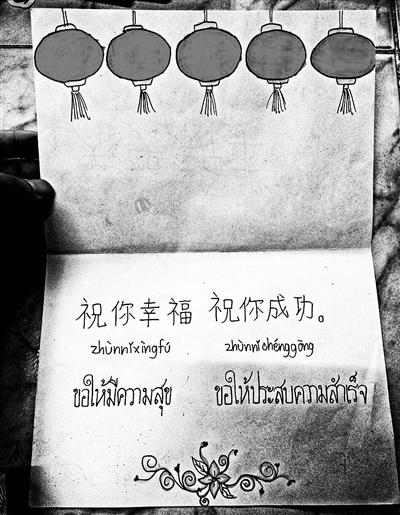 祝你幸福 祝你成功。
zhùnǐxìngfú zhùnǐchénggōng
ขอให้มีความสุข ขอให้ประสบความสำเร็จ